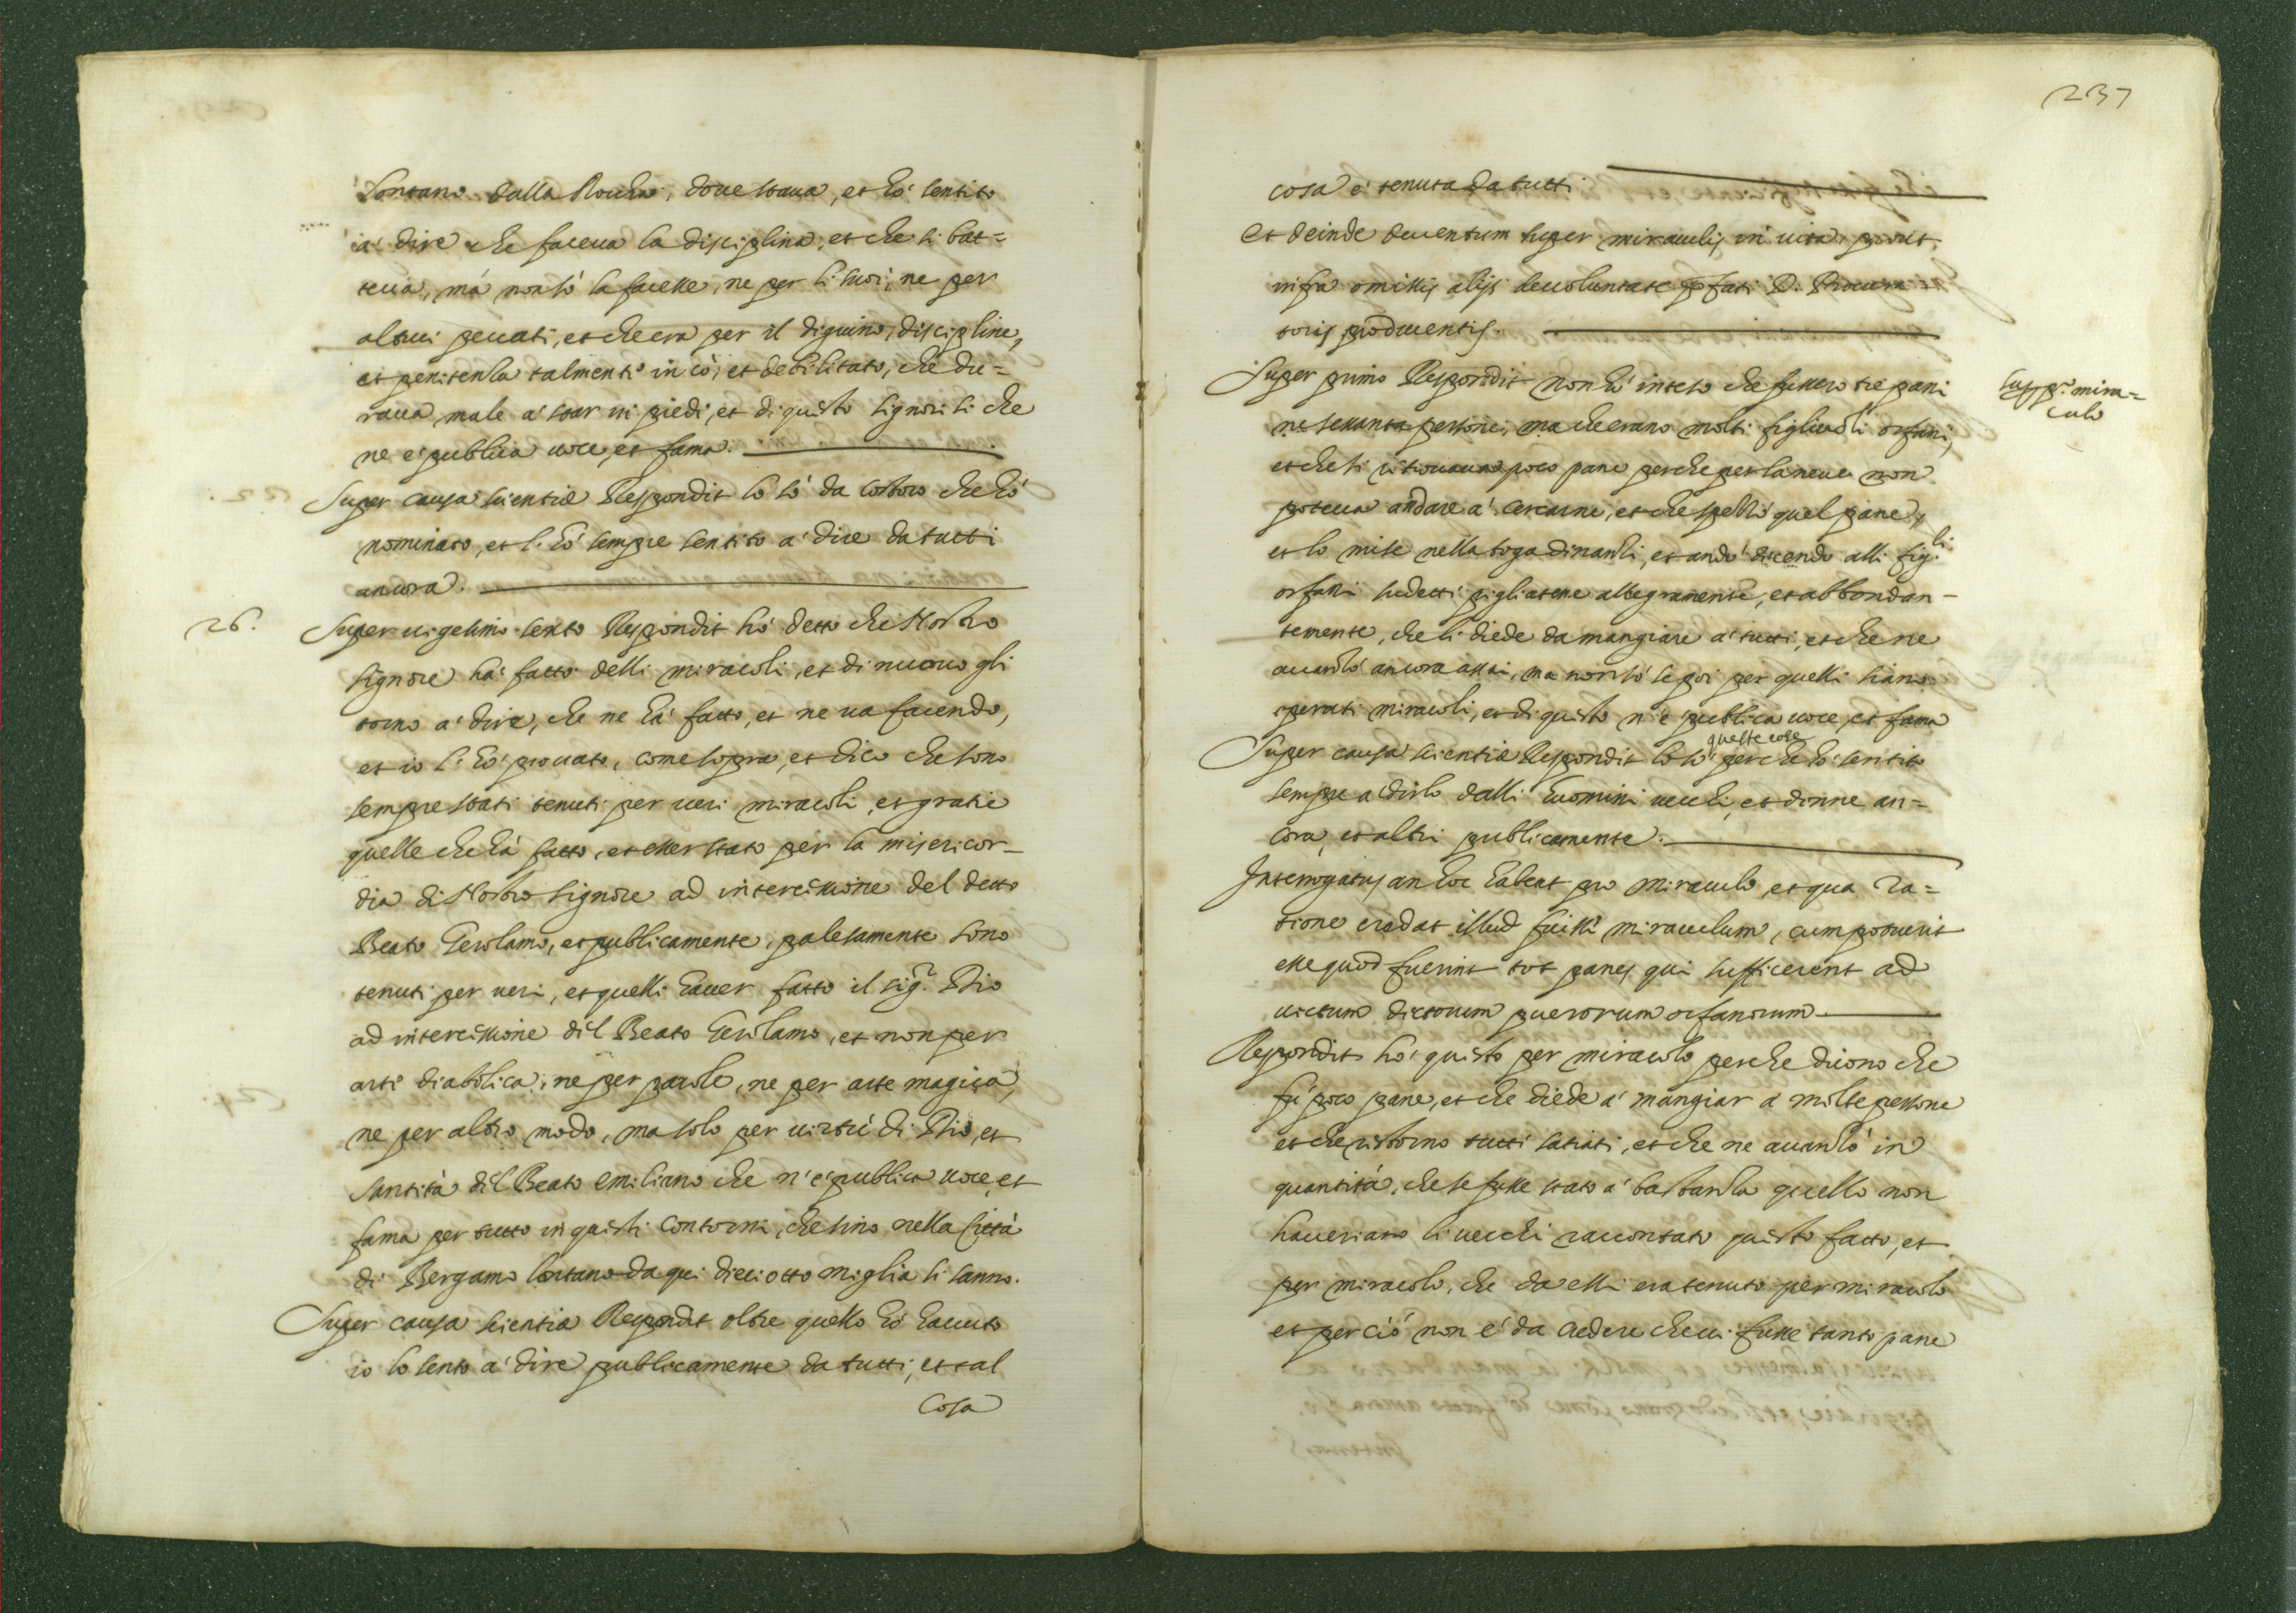 lontano dalla Roccha, doue staua, et hò sentito
à dire che faceua la disciplina, et che si bat=
teua, mà non sò la facesse, ne per li suoi, ne per
altrui peccati, et che era per il digiuno, discipline,
et penitenza talmente et debilitato, che du=
raua male à star in piedi, et di questo signori si che
ne è publica uoce, et fama.
Super causa scientiæ Respondit lo sò da costoro che hò
nominato, et l'hò sempre sentito à dire da tutti
ancora.
26. Super uigesimo sexto Respondit hò detto che Nostro
Signore hà fatto delli miracoli, et di nuouo gli
torno à dire, che ne hà fatto, et ne ua facendo,
et io l'hò prouato, come sopra, et dico che sono
sempre stati tenuti per ueri miracoli, et gratie
quelle che hà fatto, et esser stato per la misericor=
dia di Nostro Signore ad intercessione del detto
Beato Gerolamo, et publicamente, palesamente sono
tenuti per ueri, et quelli hauer fatto il sig.r Dio
ad intercessione dil Beato Gerolamo, et non per
arte diabolica, ne per parole, ne per arte magica,
ne per altro modo, ma solo per uirtù di Dio, et
santità dil Beato Emiliano che n'è publica uoce, et
fama per tutto in questi contorni, che sino nella Città
di Bergamo lontano da qui dieciotto miglia si sanno.
Super causa scientiæ Respondit oltre quello hò hauuto
io lo sento à dire publicamente da tutti, et tal
Cosa
237
cosa è tenuta da tutti
Et deinde deuentum super miraculis in uita, prout
infra omissis alijs de uoluntate prefati D. Procura
toris producentis.
Super primo Respondit non hò inteso che fussero tre pani
ne sessanta persone, ma che erano molti figliuoli orfani,
et che si ritrouaua poco pane perche per la neue non
poteua andare à cercarne, et che spezzò quel pane,
et lo mise nella toga dinanzi, et andò dicendo alli fig.li
orfani sudetti pigliatene allegramente, et abbondan=
temente, che li diede da mangiare à tutti, et che ne
auanzò ancora assai, ma non sò se poi per quelli siano
operati miracoli, et di questo n'è publica uoce, et fama
Super causa scientiæ Respondit lo sò queste cose perche hò sentito
sempre à dirlo dalli huomini uecchi, et donne an=
cora, et altri publicamente.
Interrogatus an hoc habeat pro miraculo, et qua ra=
tione credat illud fuisse miraculum, cum potuerit
esse quod fuerint tot panes qui sufficerent ad
uictum dictorum puerorum orfanorum
Respondit hò questo per miracolo perche dicono che
fù poco pane, et che diede à mangiar à molte persone
et che restorno tutti satiati, et che ne auanzò in
quantità, che se fusse stato à bastanza quello non
haueriano li uecchi raccontato questo fatto, et
per miracolo, che da essi era tenuto per miracolo
et per ciò non è da credere che ui fusse tanto pane
sup p.o mira=
culo